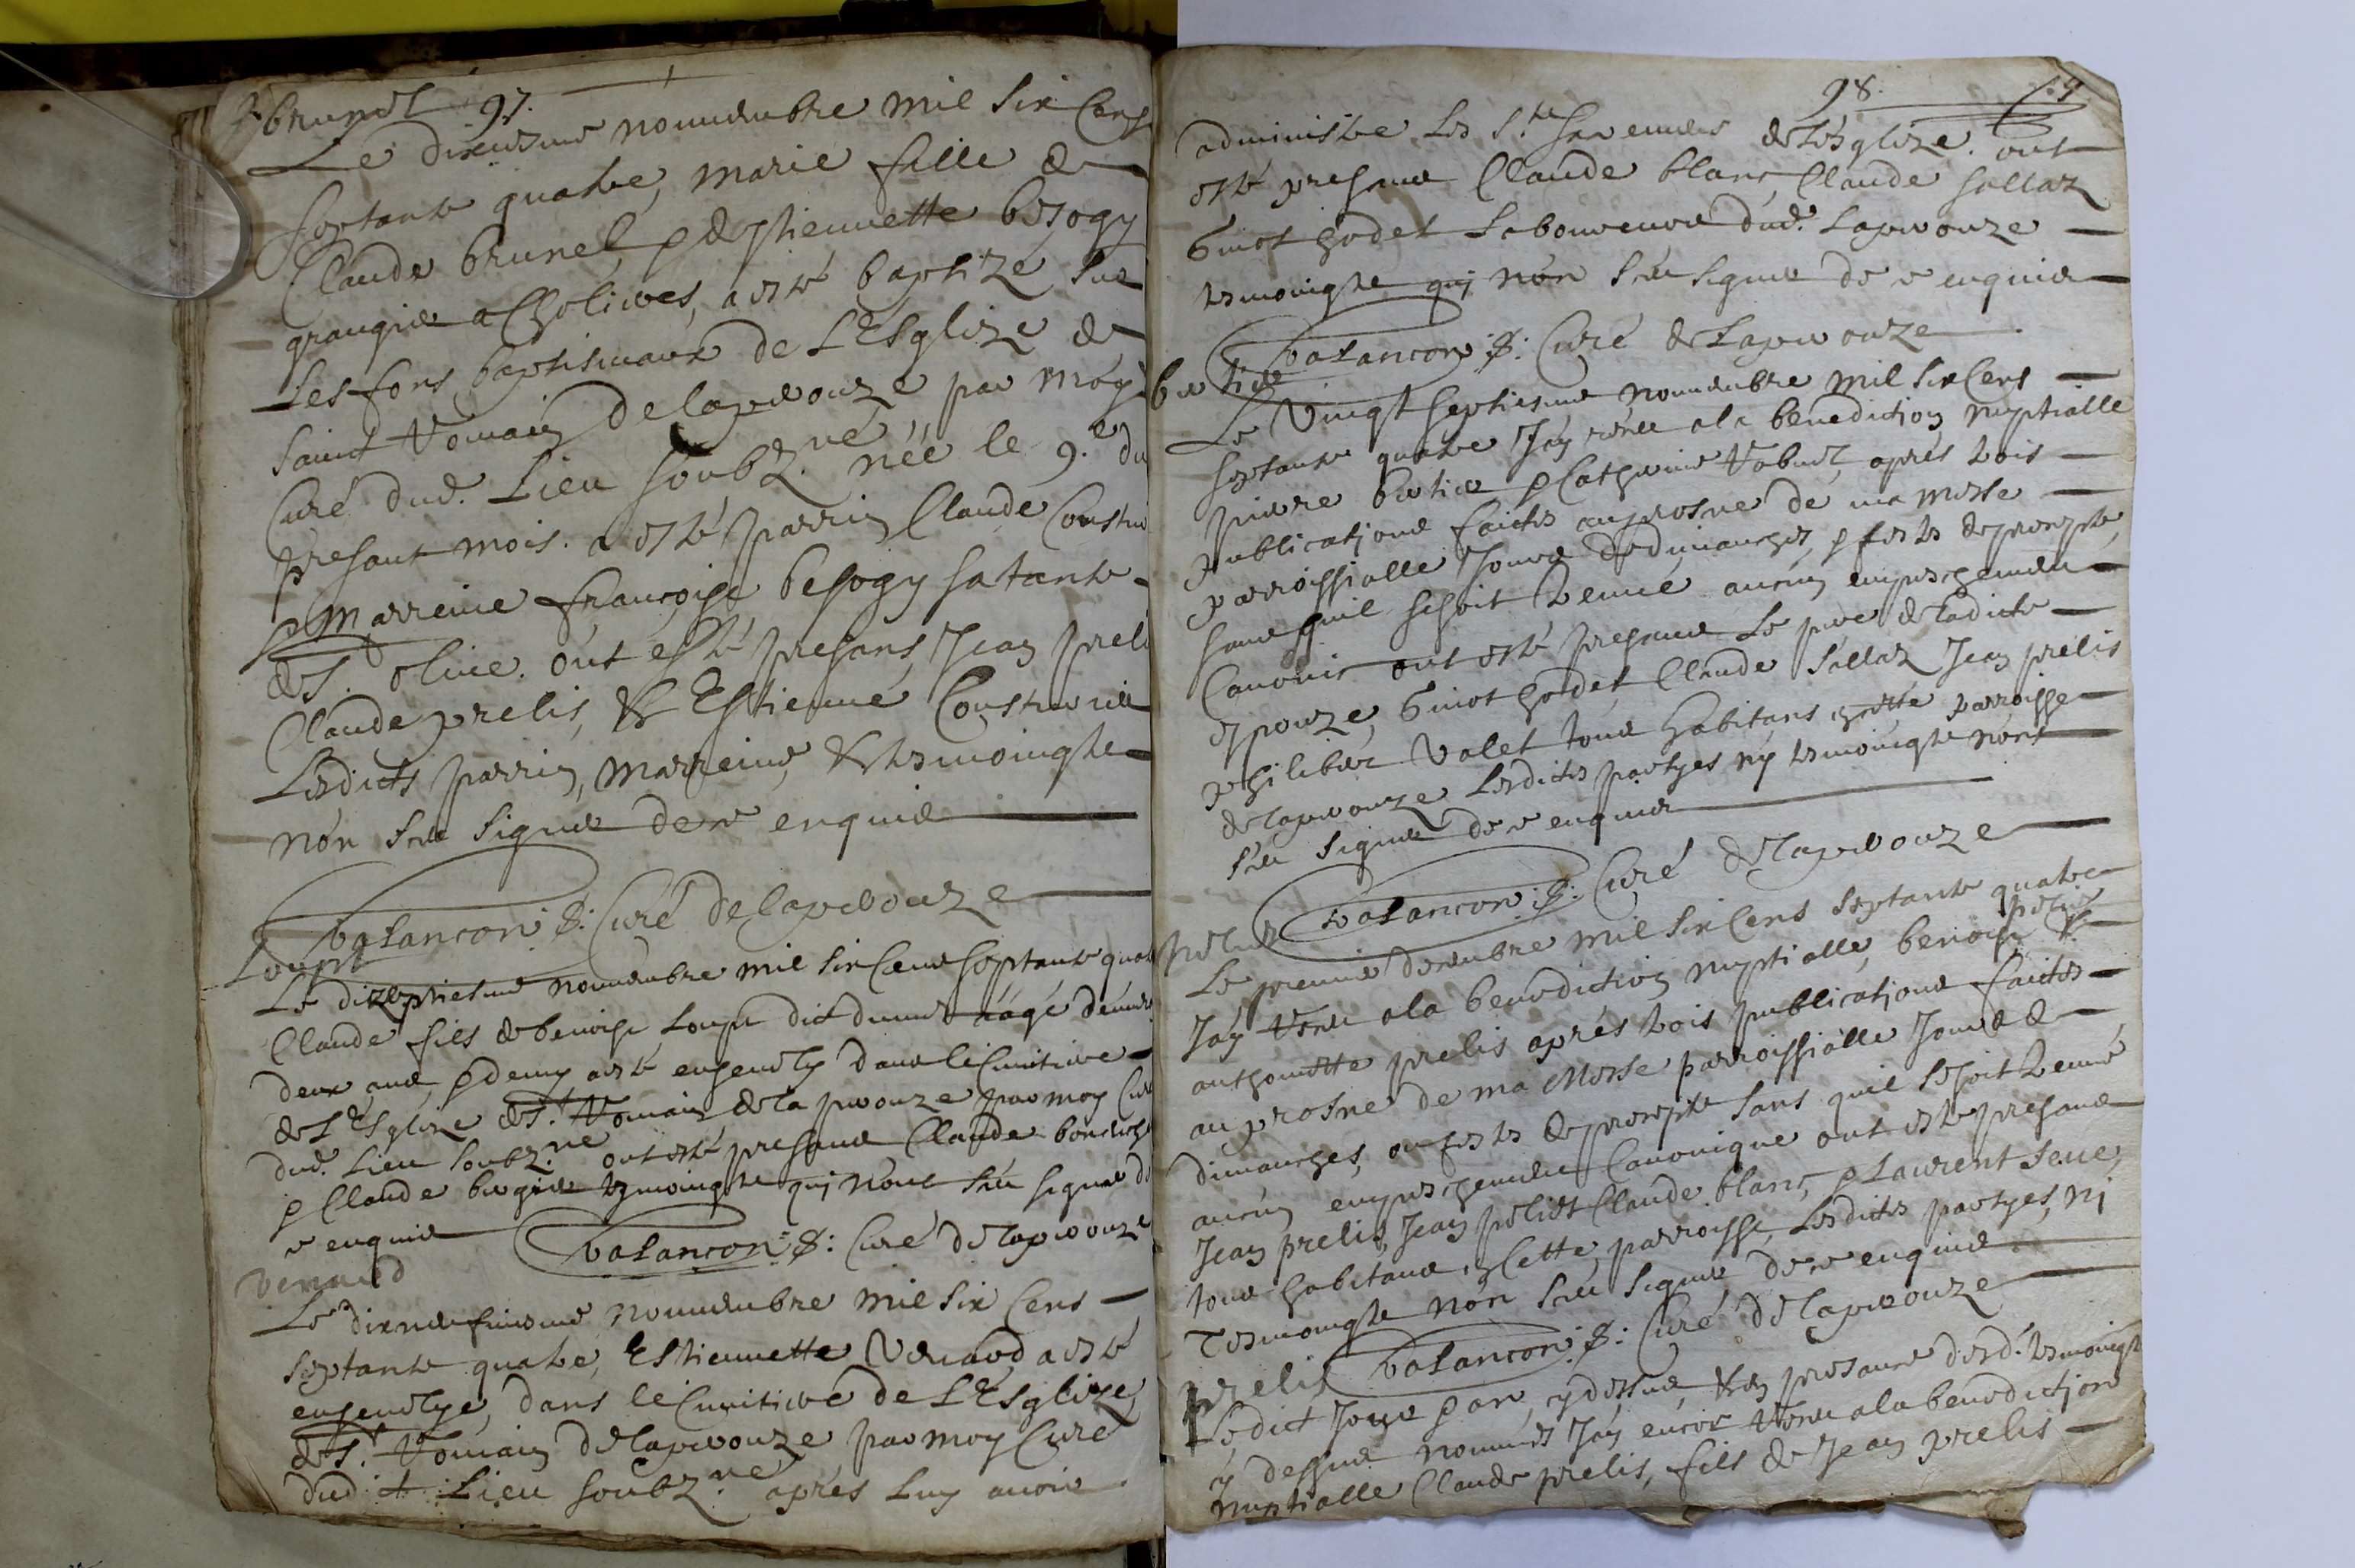 brunel 97.
Le dixiesme nouuembre mil six Cens
septante quatre, marie fille de
Claude brunel, & d'estiennette besogy
grangier a Cholives, a esté baptizé sur
Les fons baptismaux de L'Esglize de
saint Romain de laperouze par moy
Curé dud. Lieu soubz.né née le 9.e du
presant mois. a esté parrin Claude
& marreine françoise besogy
de S.t olive. ont esté presans, Jean prelis
Claude prelis, & Estienne
Lesdicts parrin, marreine, & tesmoingtz
n'on sceu signer de ce enquis
balancon p: Curé de laperouze
Loupt
Le dizeptiesme nouuembre mil six Cens septante quatre
Claude fils de benoist Loupt dict aagé d'enuiron
deux ans, & demy a esté enseuely dans le Cimitiere
de L'Esglize de S.t Romain de la perouze par moy Curé
dud. Lieu soubz.né ont esté presans Claude
& Claude tesmoingtz qui n'ont sceu signer de
ce enquis balancon p: Curé de laperouze
Venard
Le dixneufuiesme nouuembre mil six Cens
septante quatre, Estiennette Venard a esté
enseuelye, dans le Cimitiere de L'Esglize,
de S.t Romain de laperouze, par moy Curé
dudit Lieu soubz.né après Luy auoir
98.
administre les S.ts Sacremens de L'Esglize. ont
esté presans Claude blanc, Claude sallaz
Guiot godet Laboureurs dud. Laperouze
tesmoingtz qui n'on sceu signer de ce enquis
balancon p: Curé de Laperouze
Le Vingt septiesme nouuembre mil six Cens
septante quatre J'ay receu a la benediction nuptialle
pierre & Catherine après trois
publications faictes au prosne de ma messe
parroissialle Jours de dimanches, & festes de precepte,
sans qu'il se soit treuué aucun empeschement
Canonic ont esté presans Le pere de Ladicte
espouze, Guiot godet Claude sallaz Jean prelis
philibert Valet tous habitans cette parroisse
de laperouze Lesdictes partyes ny tesmoingtz n'ont
sceu signer de ce enquis
balancon p: Curé de laperouze
Le premier decembre mil six Cens septante quatre
J'ay receu a la benediction nuptialle, benoist &
anthoinette prelis après trois publications faictes
au prosne de ma Messe parroissialle Jours de
dimanches, ou festes de precepte sans qu'il se soit treuué
aucun empeschement Canonique ont esté presans
Jean prelis, Jean Claude blanc, & Laurent
tous habitans, Cette parroisse, Lesdictes partyes, ni
Tesmoingtz n'on sceu signer de ce enquis
balancon p: Curé de laperouze
prelis
Ledict Jour & an, cy dessus, & en presance desd. tesmoingtz
cy dessus nommés J'ay encor receu a la benediction
nuptialle Claude prelis, fils de Jean prelis